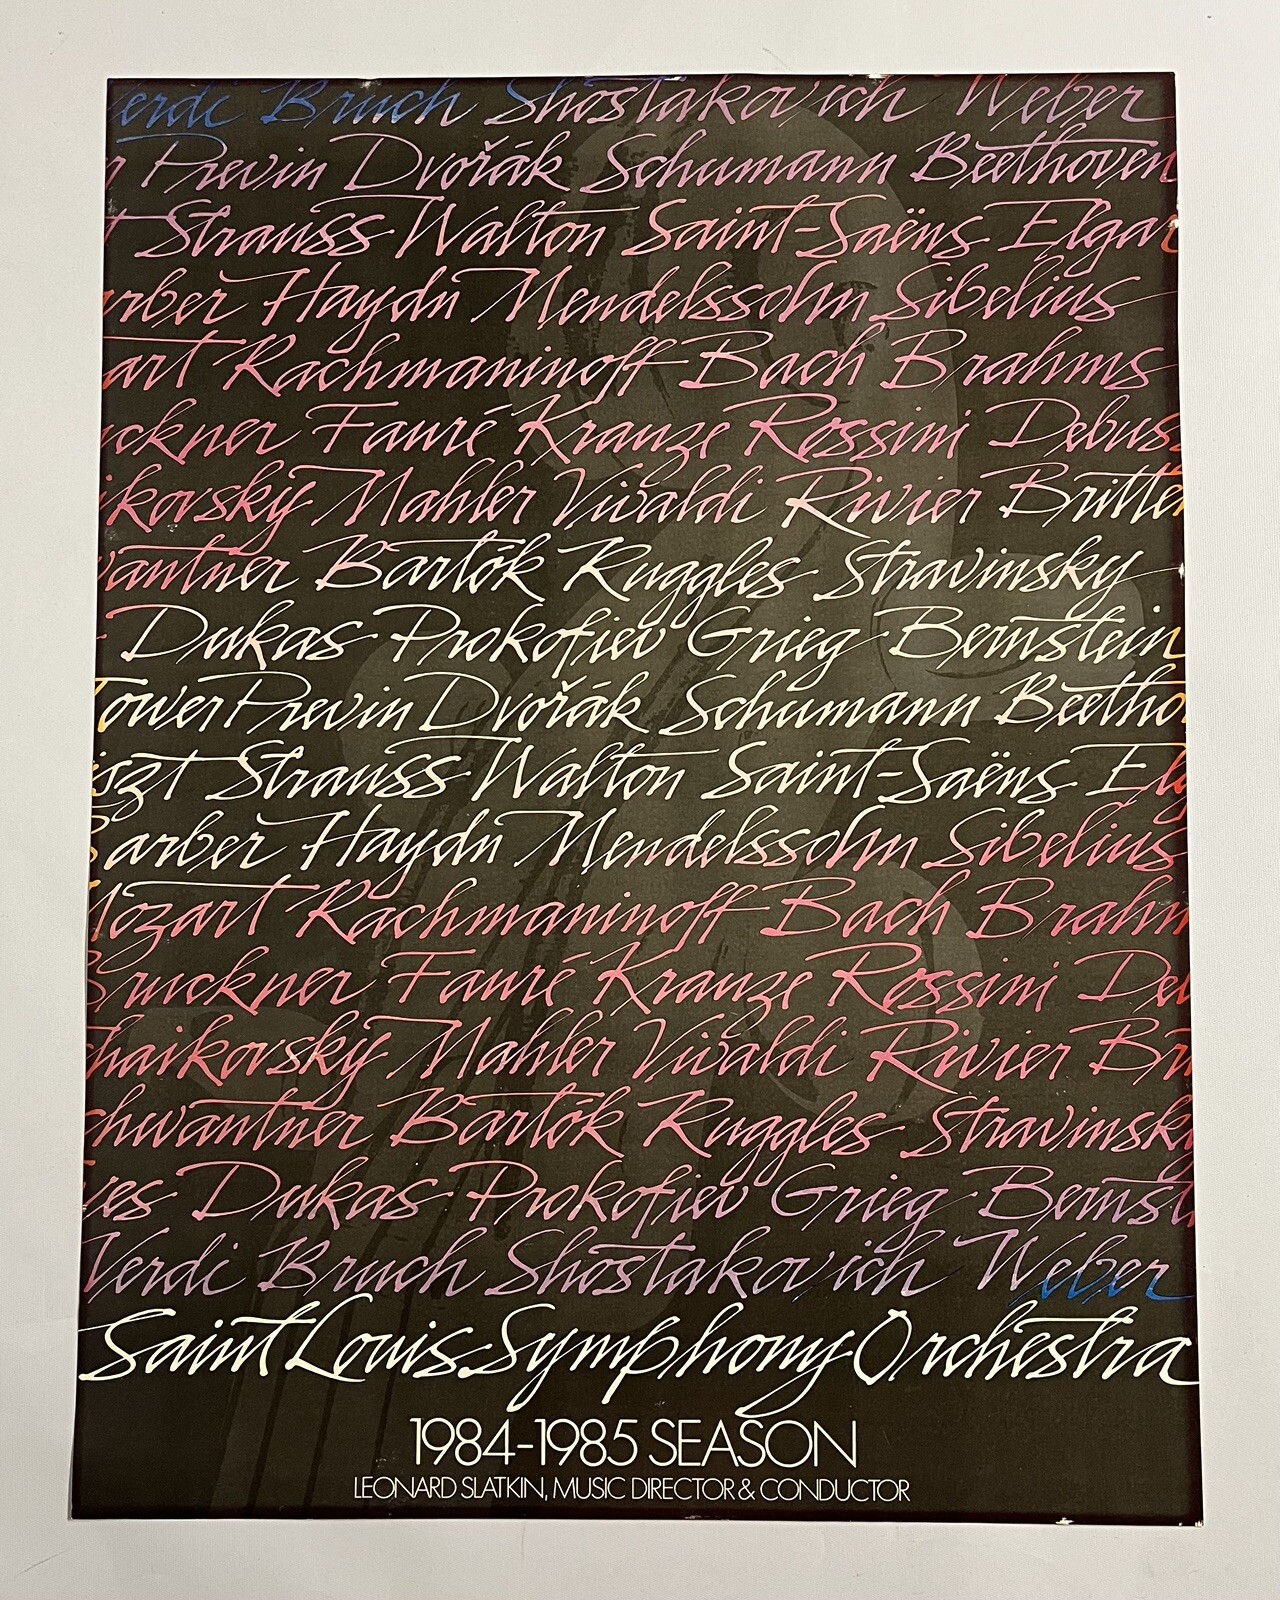 erdi Bruch Shostakovich Weber
r Previn Dvořák Schumann Beethoven
t Strauss Walton Saint-Saëns Elgar
arber Haydn Mendelssohn Sibelius
zart Rachmaninoff Bach Brahms
uckner Fauré Krauze Rossini Debus
ikovsky Mahler Vivaldi Rivier Britten
wantner Bartók Ruggles Stravinsky
Dukas Prokofiev Grieg Bernstein
Tower Previn Dvořák Schumann Beetho
iszt Strauss Walton Saint-Saëns Elg
Barber Haydn Mendelssohn Sibelius
Mozart Rachmaninoff Bach Brahm
Bruckner Fauré Krauze Rossini Deb
chaikovsky Mahler Vivaldi Rivier Bri
chwantner Bartók Ruggles Stravinsky
ves Dukas Prokofiev Grieg Bernst
Verdi Bruch Shostakovich Weber
Saint Louis Symphony Orchestra
1984-1985 SEASON
LEONARD SLATKIN, MUSIC DIRECTOR & CONDUCTOR